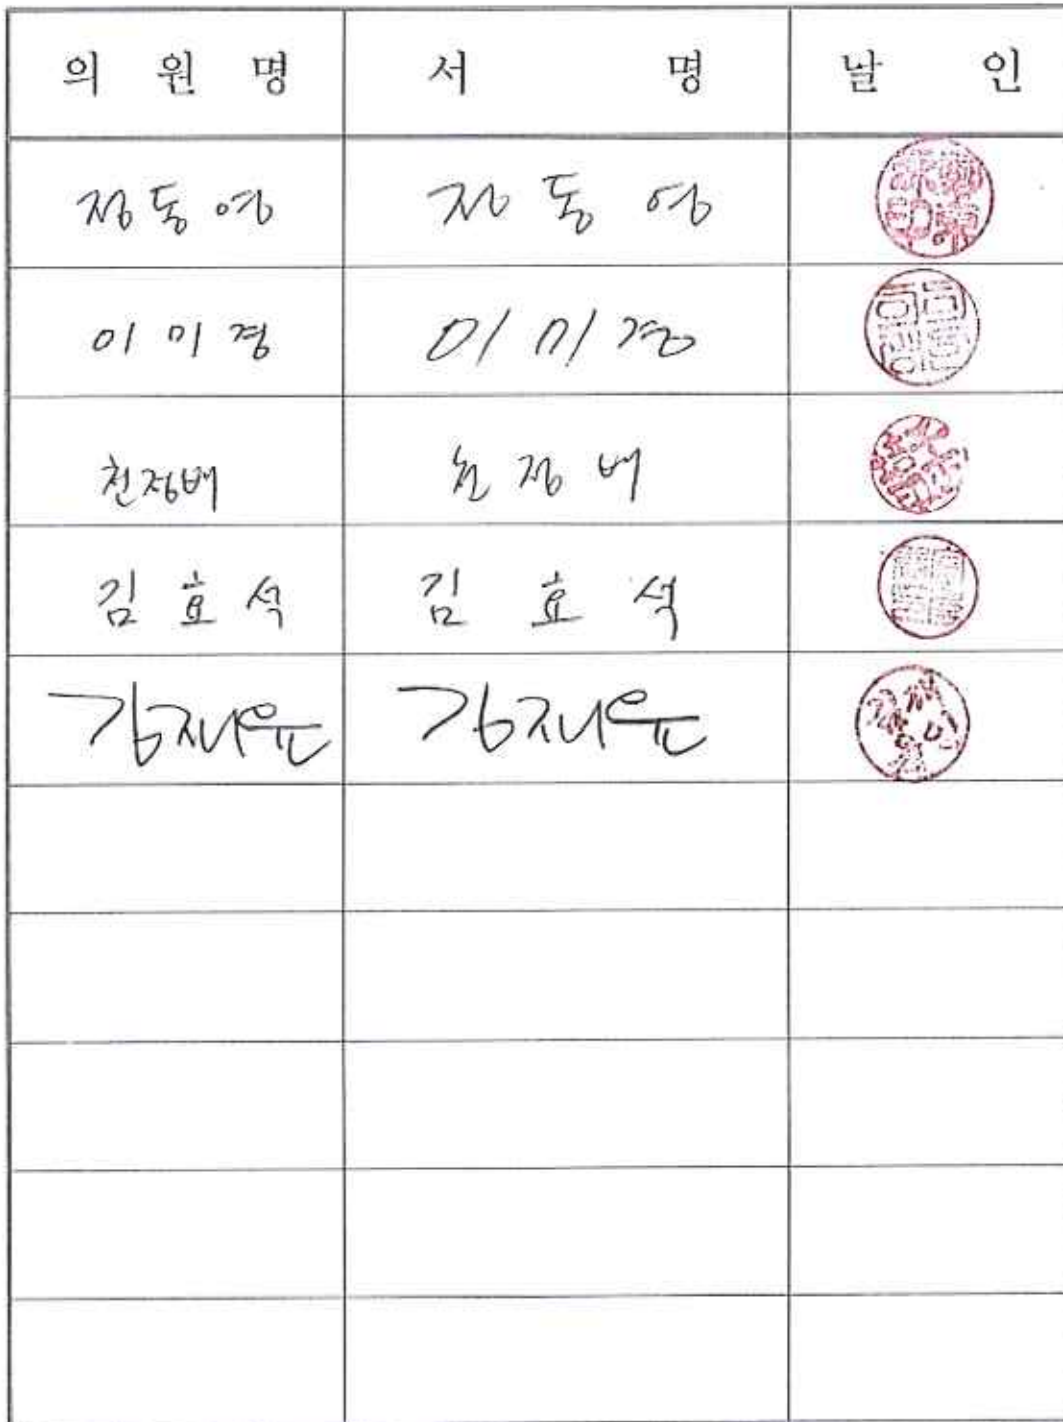 의 원 명 서 명 날 인
정동영 정동영
이미경 이미경
천정배 천정배
김효석 김효석
김재윤 김재윤